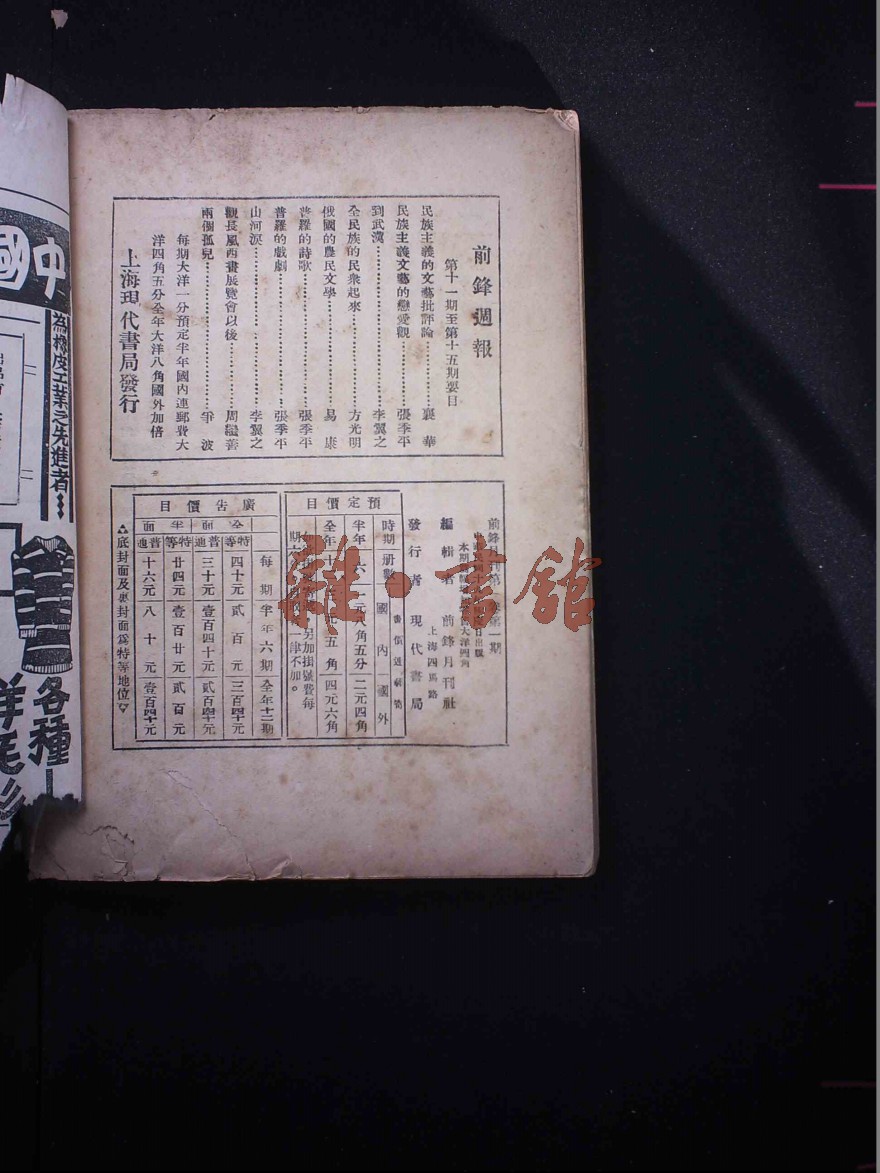 前鋒週報
第十一期至第十五期要目
民族主義的文藝批評論…………襄 華
民族主義文藝的戀愛觀…………張季平
到武漢…………李翼之
全民族的民衆起來…………方光明
俄國的農民文學…………易 康
普羅的詩歌…………張季平
普羅的戲劇…………張季平
山河淚…………李翼之
觀長風西畫展覽會以後…………周 善
兩個孤兒………… 波
每期大洋一分預定半年國內連郵費大
洋四角五分全年大洋八角國外加倍
上海現代書局發行
前鋒月刊第 期
編輯者 前鋒月刊社
上海四馬路
發行者 現代書局
預定價目
時期 册數 國內 國外
半年 六 二元四角
全年 十 元五角 四元六角
另加掛號費每
期六 律不加。
廣告價目
全面 半面
特等 普通 特等 普通
每期 四十元 三十元 廿四元 十六元
半年六期 貳百元 壹百四十元 壹百廿元 八十元
全年十二期 三百四十元 貳百四十元 貳百元 壹百四十元
底封面及裏封面爲特等地位
中國
爲橡皮工業之先進者
各種
雜·書館